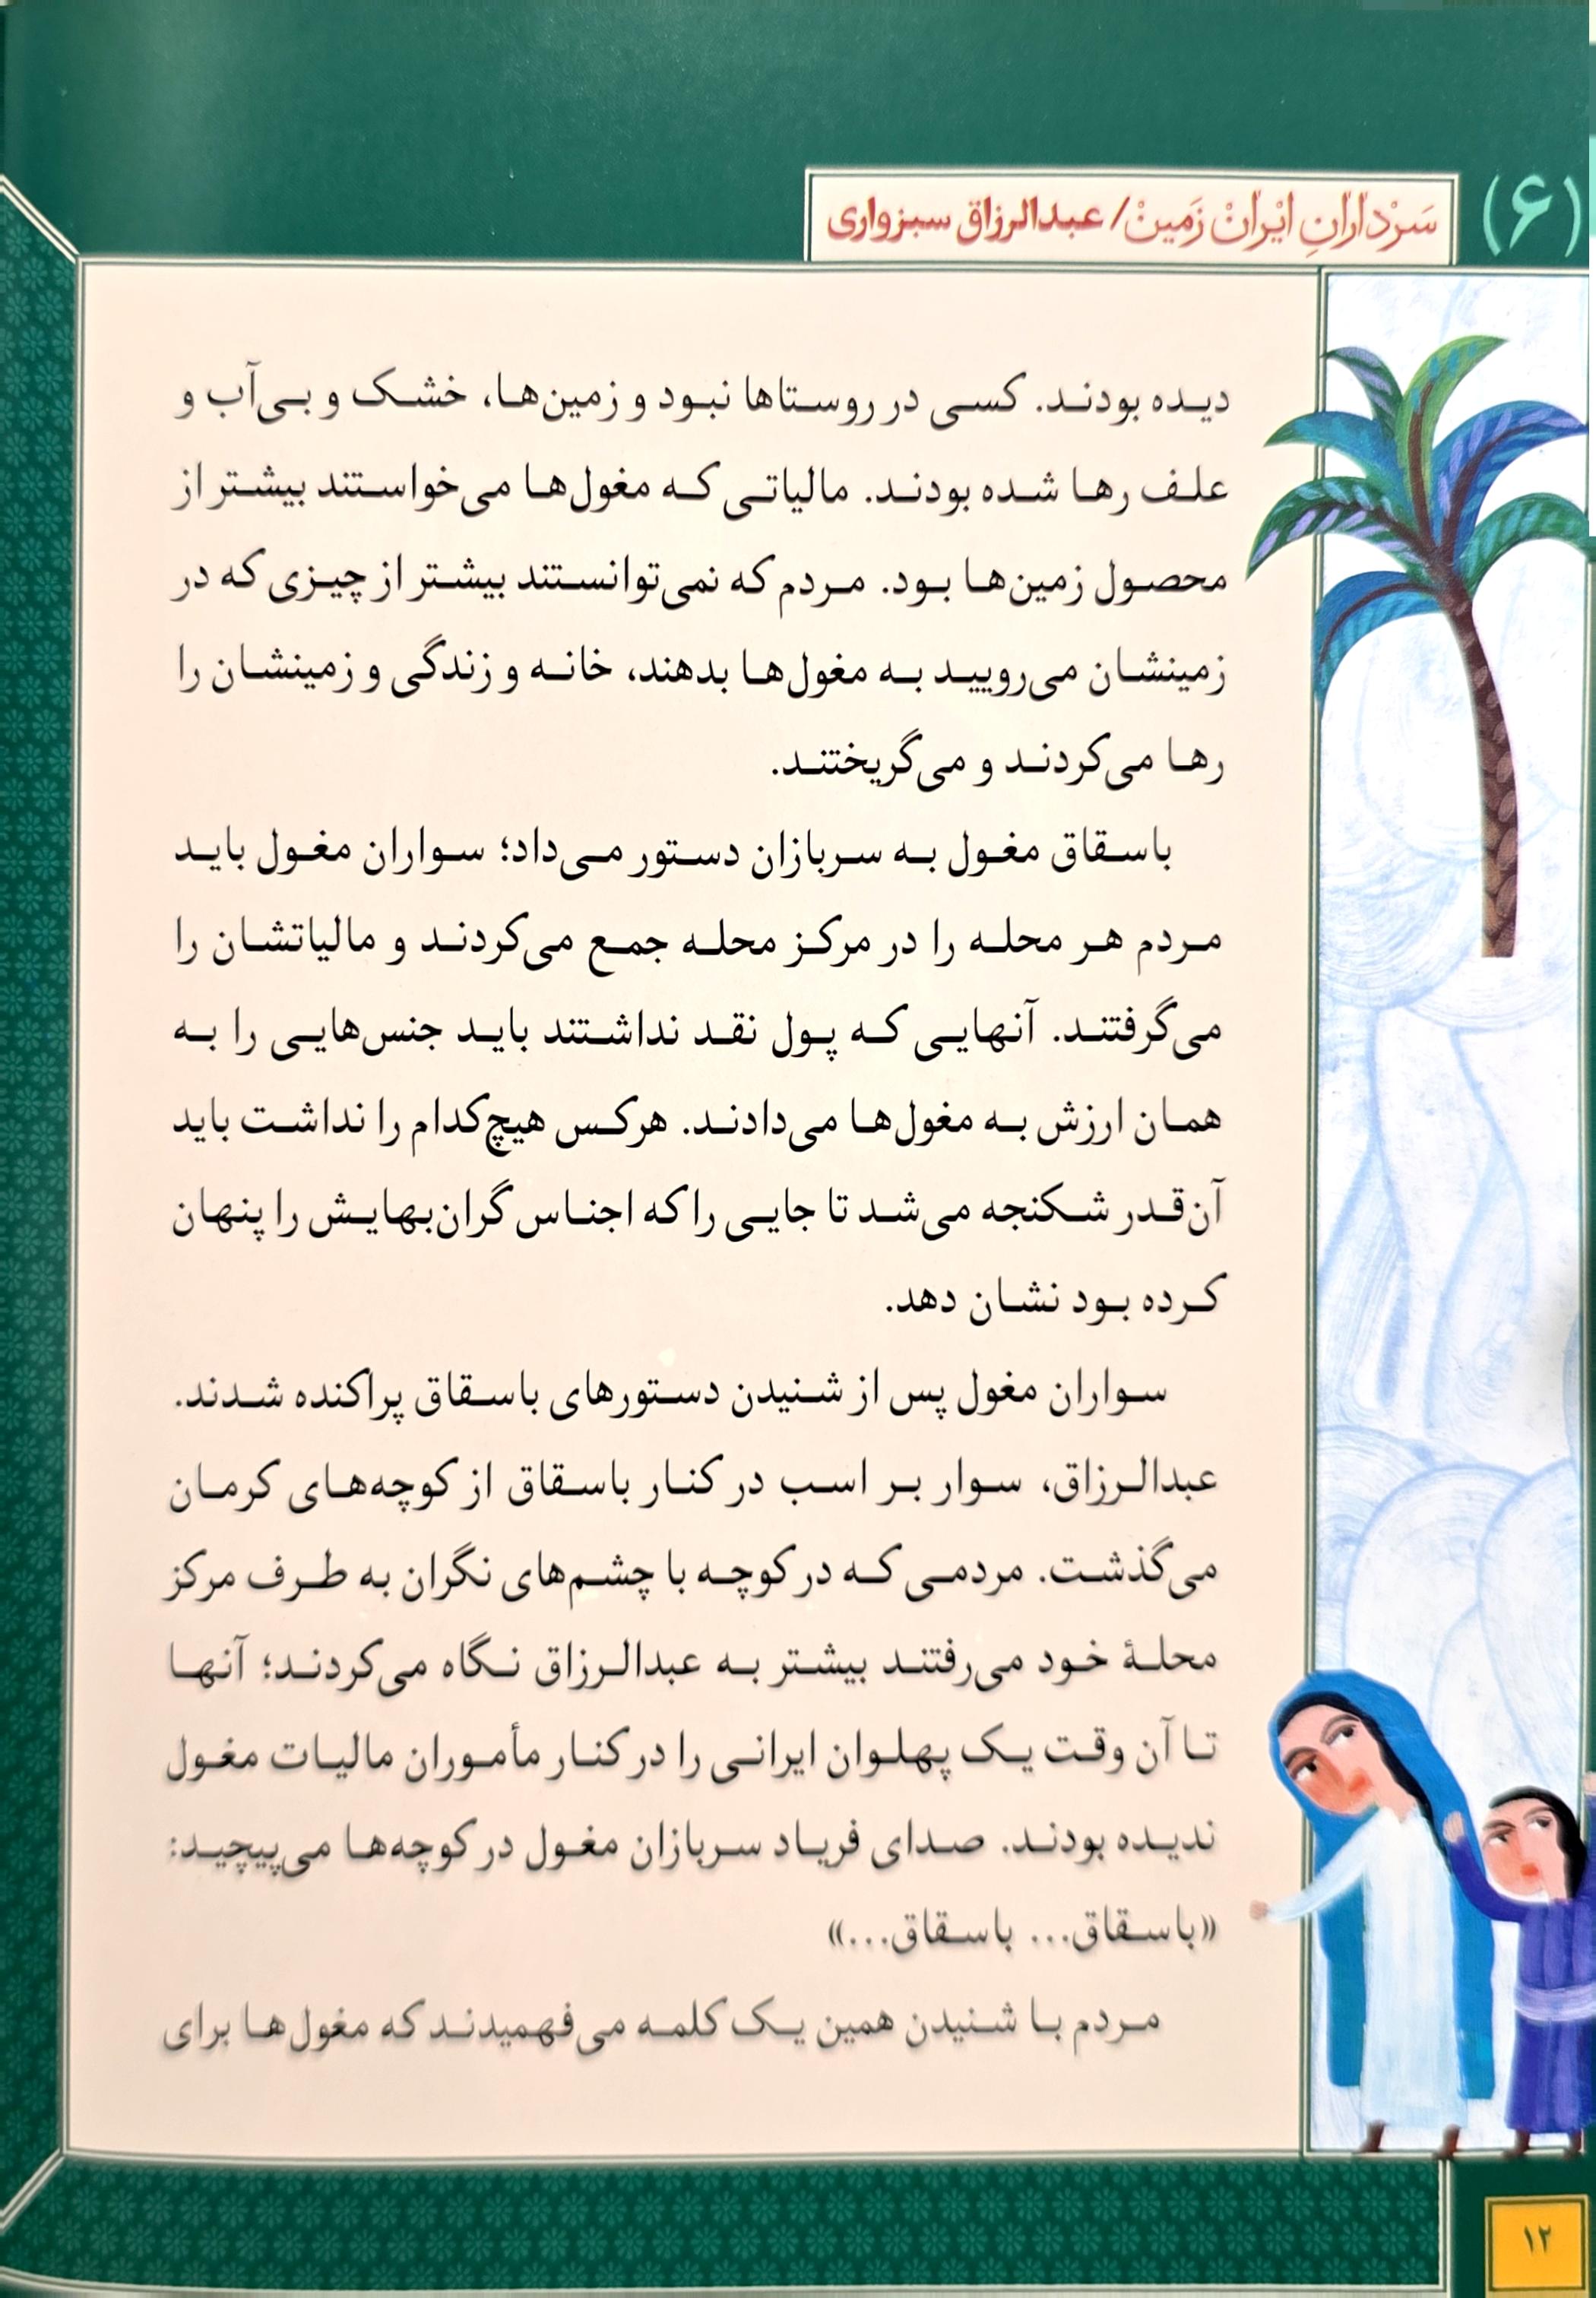 (۶)
سَرْدارانِ ایْرانْ زَمینْ/ عبدالرزاق سبزواری
دیـده بودنـد. کسـی در روسـتاها نبـود و زمین‌هـا، خشـک و بـی‌آب و
علـف رهـا شـده بودنـد. مالیاتـی کـه مغول‌هـا می‌خواسـتند بیشـتر از
محصـول زمین‌هـا بـود. مـردم که نمی‌توانسـتند بیشـتر از چیـزی که در
زمینشـان می‌روییـد بـه مغول‌هـا بدهند، خانـه و زندگی و زمینشـان را
رهـا می‌کردنـد و می‌گریختنـد.
باسـقاق مغـول بـه سـربازان دسـتور مـی‌داد؛ سـواران مغـول بایـد
مـردم هـر محلـه را در مرکـز محلـه جمـع می‌کردنـد و مالیاتشـان را
می‌گرفتنـد. آنهایـی کـه پـول نقـد نداشـتند بایـد جنس‌هایـی را بـه
همـان ارزش بـه مغول‌هـا می‌دادنـد. هرکـس هیچ‌کدام را نداشـت باید
آن‌قـدر شـکنجه می‌شـد تا جایـی را که اجنـاس گران‌بهایـش را پنهان
کـرده بـود نشـان دهد.
سـواران مغول پس از شـنیدن دسـتورهای باسـقاق پراکنده شـدند.
عبدالـرزاق، سـوار بـر اسـب در کنـار باسـقاق از کوچه‌هـای کرمـان
می‌گذشـت. مردمـی کـه در کوچـه با چشـم‌های نگران به طـرف مرکز
محلـۀ خـود می‌رفتنـد بیشـتر بـه عبدالـرزاق نـگاه می‌کردنـد؛ آنهـا
تـا آن وقـت یـک پهلـوان ایرانـی را در کنـار مأمـوران مالیـات مغـول
ندیـده بودنـد. صـدای فریـاد سـربازان مغـول در کوچه‌هـا می‌پیچیـد:
«باسـقاق... باسـقاق...»
مـردم بـا شـنیدن همین یـک کلمـه می‌فهمیدنـد که مغول‌هـا برای
۱۲